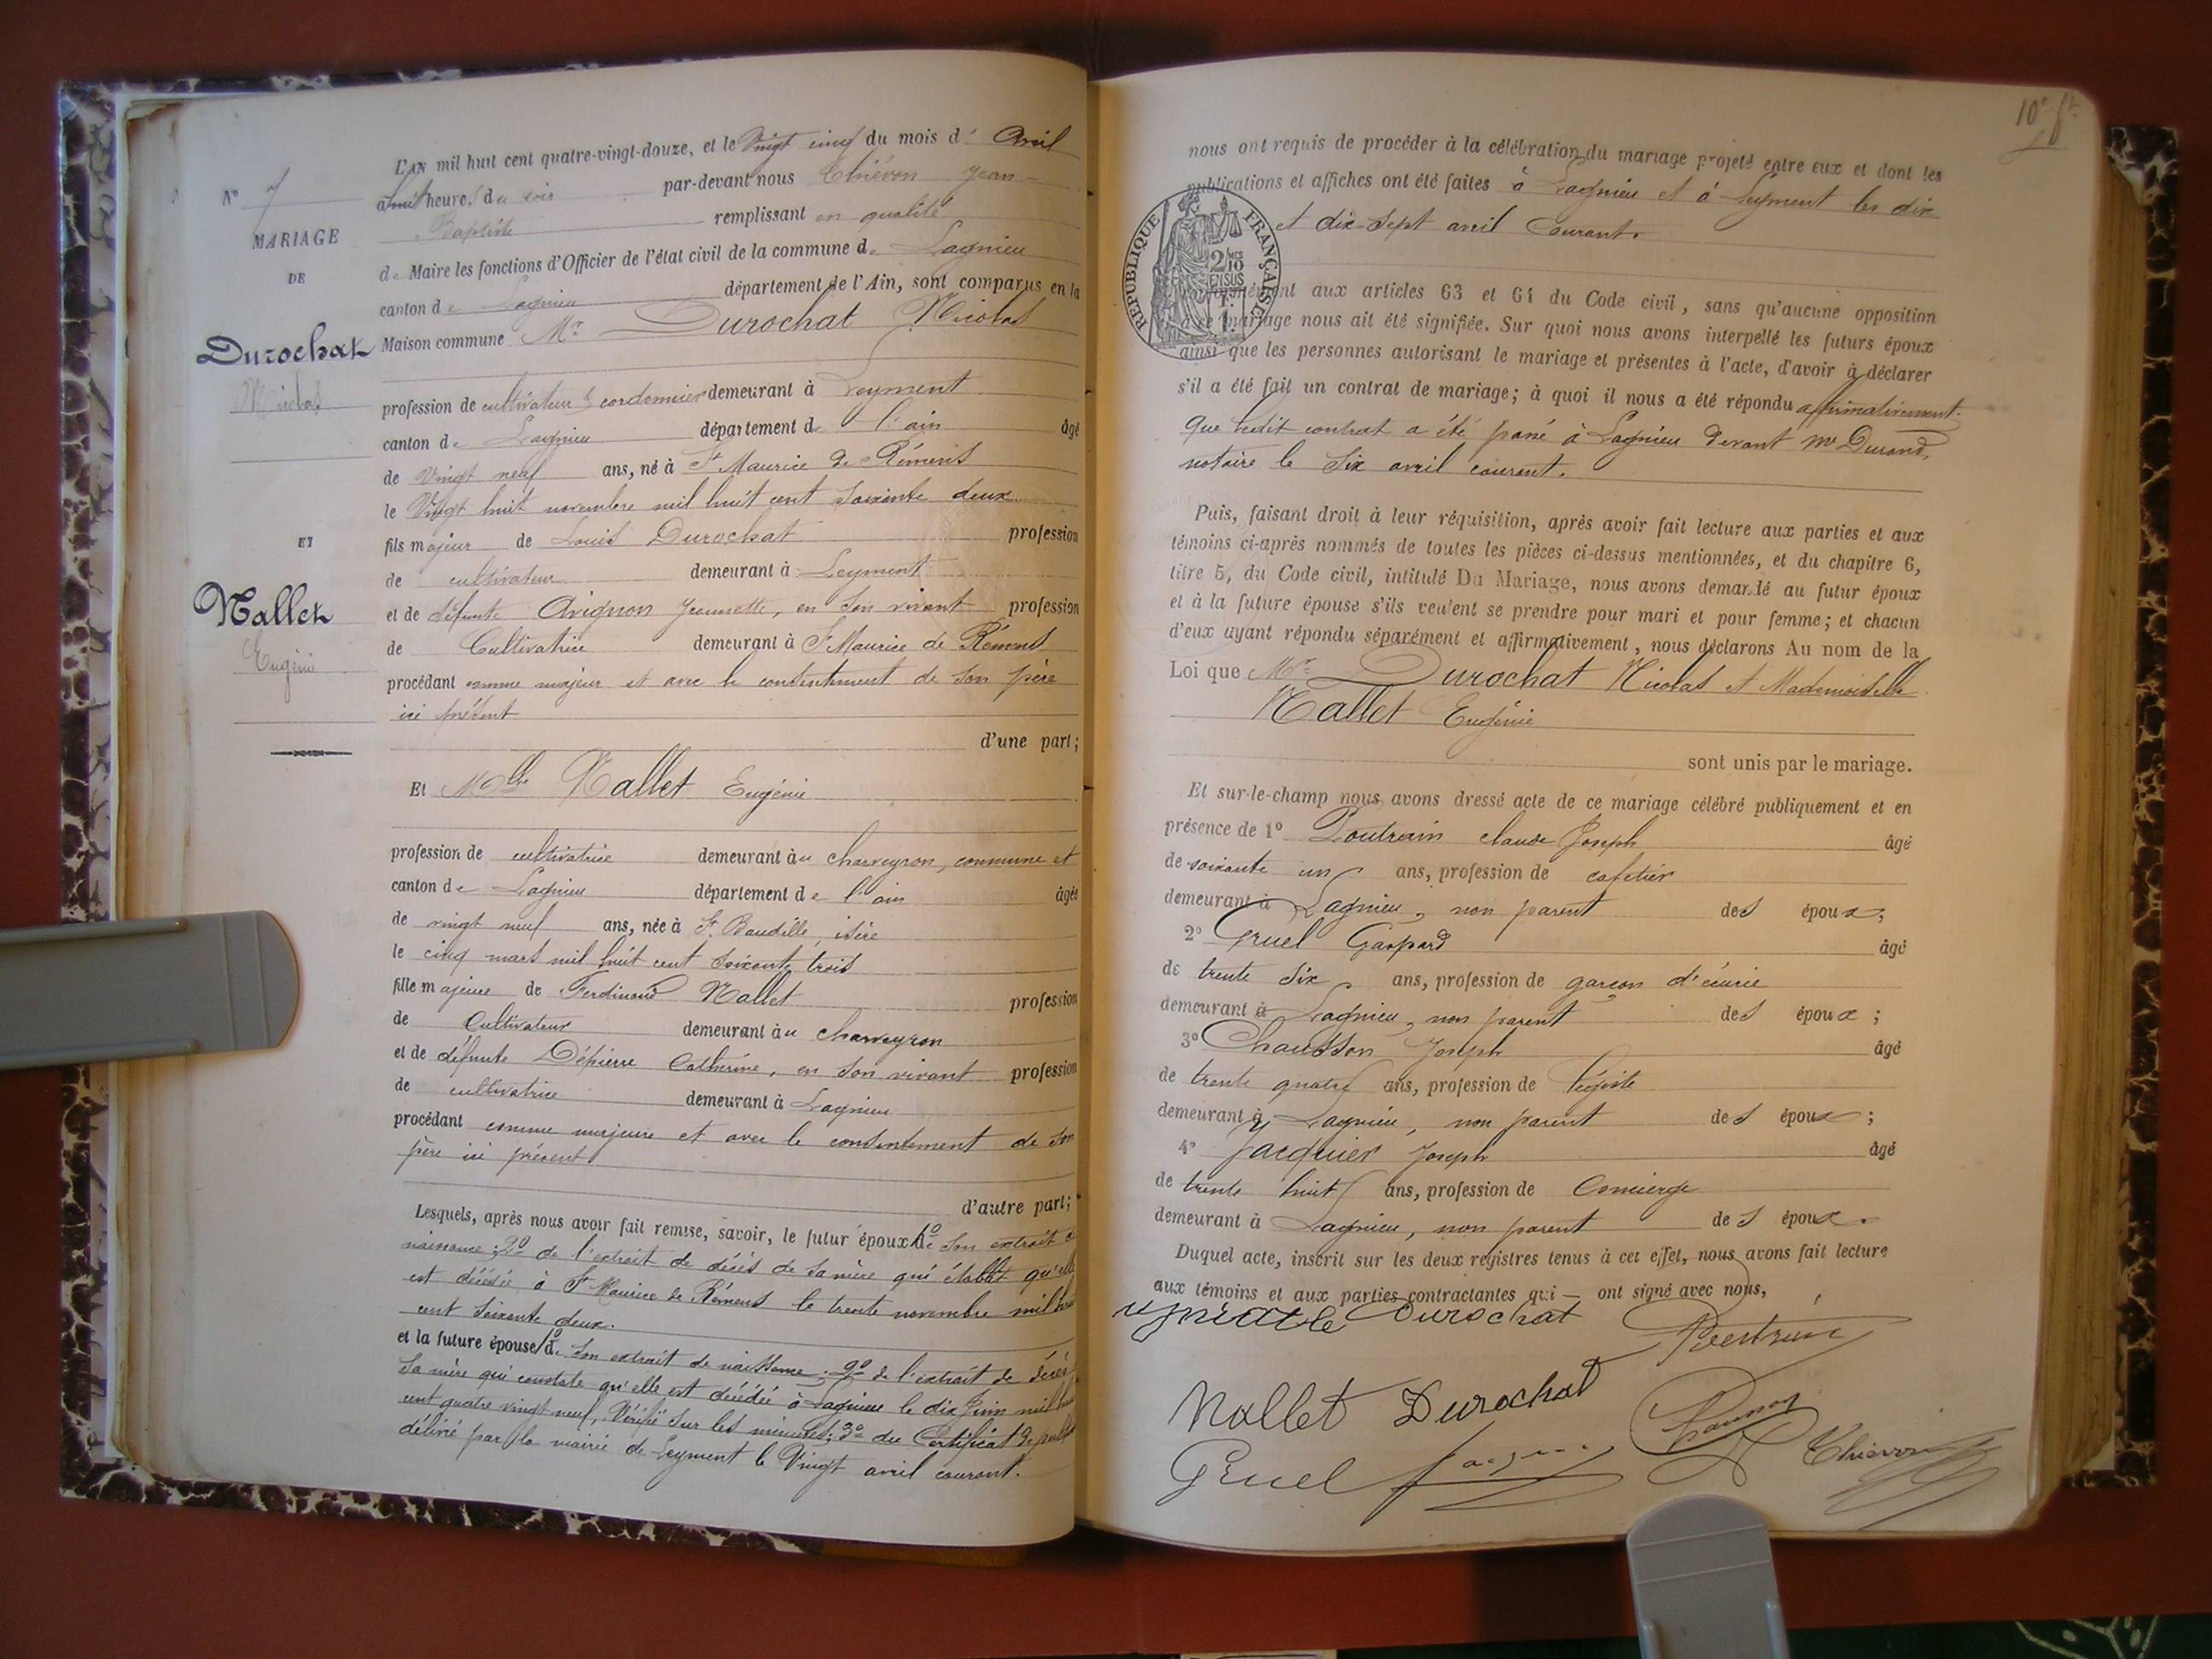 L'AN mil huit cent quatre-vingt-douze, et le Vingt cinq du mois d' Avril
N° 7
à huit heures du soir par-devant nous Thiévon Jean
MARIAGE
Baptiste remplissant en qualité
DE
de Maire les fonctions d'Officier de l'état civil de la commune de Lagnieu
canton de Lagnieu département de l'Ain, sont comparus en la
Durochat
Maison commune Mr Durochat Nicolas
Nicolas
profession de cultivateur & cordonnier demeurant à Leyment
canton de Lagnieu département de l'ain âgé
de vingt neuf ans, né à St Maurice de Rémens
le Vingt huit novembre mil huit cent soixante deux
ET
fils majeur de Louis Durochat profession
de cultivateur demeurant à Leyment
Nallet
et de défunte Avignon Jeannette, en son vivant profession
Eugénie
de Cultivatrice demeurant à St Maurice de Rémens
procédant comme majeur et avec le consentement de son père
ici présent
d'une part;
Et Mlle Nallet Eugénie
profession de cultivatrice demeurant au charveyron, commune et
canton de Lagnieu département de l'ain âgée
de vingt neuf ans, née à St Baudille, isère
le cinq mars mil huit cent soixante trois
fille majeure de Ferdinand Nallet profession
de Cultivateur demeurant au charveyron
et de défunte Dépierre Catherine, en son vivant profession
de cultivatrice demeurant à Lagnieu
procédant comme majeure et avec le consentement de son
père ici présent
d'autre part;
Lesquels, après nous avoir fait remise, savoir, le futur époux 1° de son extrait de
naissance; 2° de l'extrait de décès de sa mère qui établit qu'elle
est décédée à St Maurice de Rémens le trente novembre mil huit
cent soixante deux.
et la future épouse 1° de son extrait de naissance; 2° de l'extrait de décès
sa mère qui constate qu'elle est décédée à Lagnieu le dix Juin mil huit
cent quatre vingt neuf, Vérifié sur les minutes; 3° du Certificat de
délivré par la mairie de Leyment le Vingt avril courant.
10e ft
nous ont requis de procéder à la célébration du mariage projeté entre eux et dont les
publications et affiches ont été faites à Lagnieu et à Leyment les dix
et dix-sept avril Courant.
RÉPUBLIQUE FRANÇAISE
2/10 EN SUS
conformément aux articles 63 et 64 du Code civil, sans qu'aucune opposition
à ce mariage nous ait été signifiée. Sur quoi nous avons interpellé les futurs époux
ainsi que les personnes autorisant le mariage et présentes à l'acte, d'avoir à déclarer
s'il a été fait un contrat de mariage; à quoi il nous a été répondu affirmativement.
Que ledit contrat a été passé à Lagnieu devant Me Durand,
notaire le six avril courant.
Puis, faisant droit à leur réquisition, après avoir fait lecture aux parties et aux
témoins ci-après nommés de toutes les pièces ci-dessus mentionnées, et du chapitre 6,
titre 5, du Code civil, intitulé Du Mariage, nous avons demandé au futur époux
et à la future épouse s'ils veulent se prendre pour mari et pour femme; et chacun
d'eux ayant répondu séparément et affirmativement, nous déclarons Au nom de la
Loi que Mr Durochat Nicolas et Mademoiselle
Nallet Eugénie
sont unis par le mariage.
Et sur-le-champ nous avons dressé acte de ce mariage célébré publiquement et en
présence de 1° claude Joseph âgé
de soixante un ans, profession de cafetier
demeurant à Lagnieu, non parent des époux;
2° Gruel Gaspard âgé
de trente six ans, profession de garçon d'écurie
demeurant à Lagnieu, non parent des époux;
3° Chausson Joseph âgé
de trente quatre ans, profession de
demeurant à Lagnieu, non parent des époux;
4° Jacquier Joseph âgé
de trente huit ans, profession de Concierge
demeurant à Lagnieu, non parent des époux.
Duquel acte, inscrit sur les deux registres tenus à cet effet, nous avons fait lecture
aux témoins et aux parties contractantes qui ont signé avec nous,
Durochat
Nallet Durochat
Gruel Thiévon